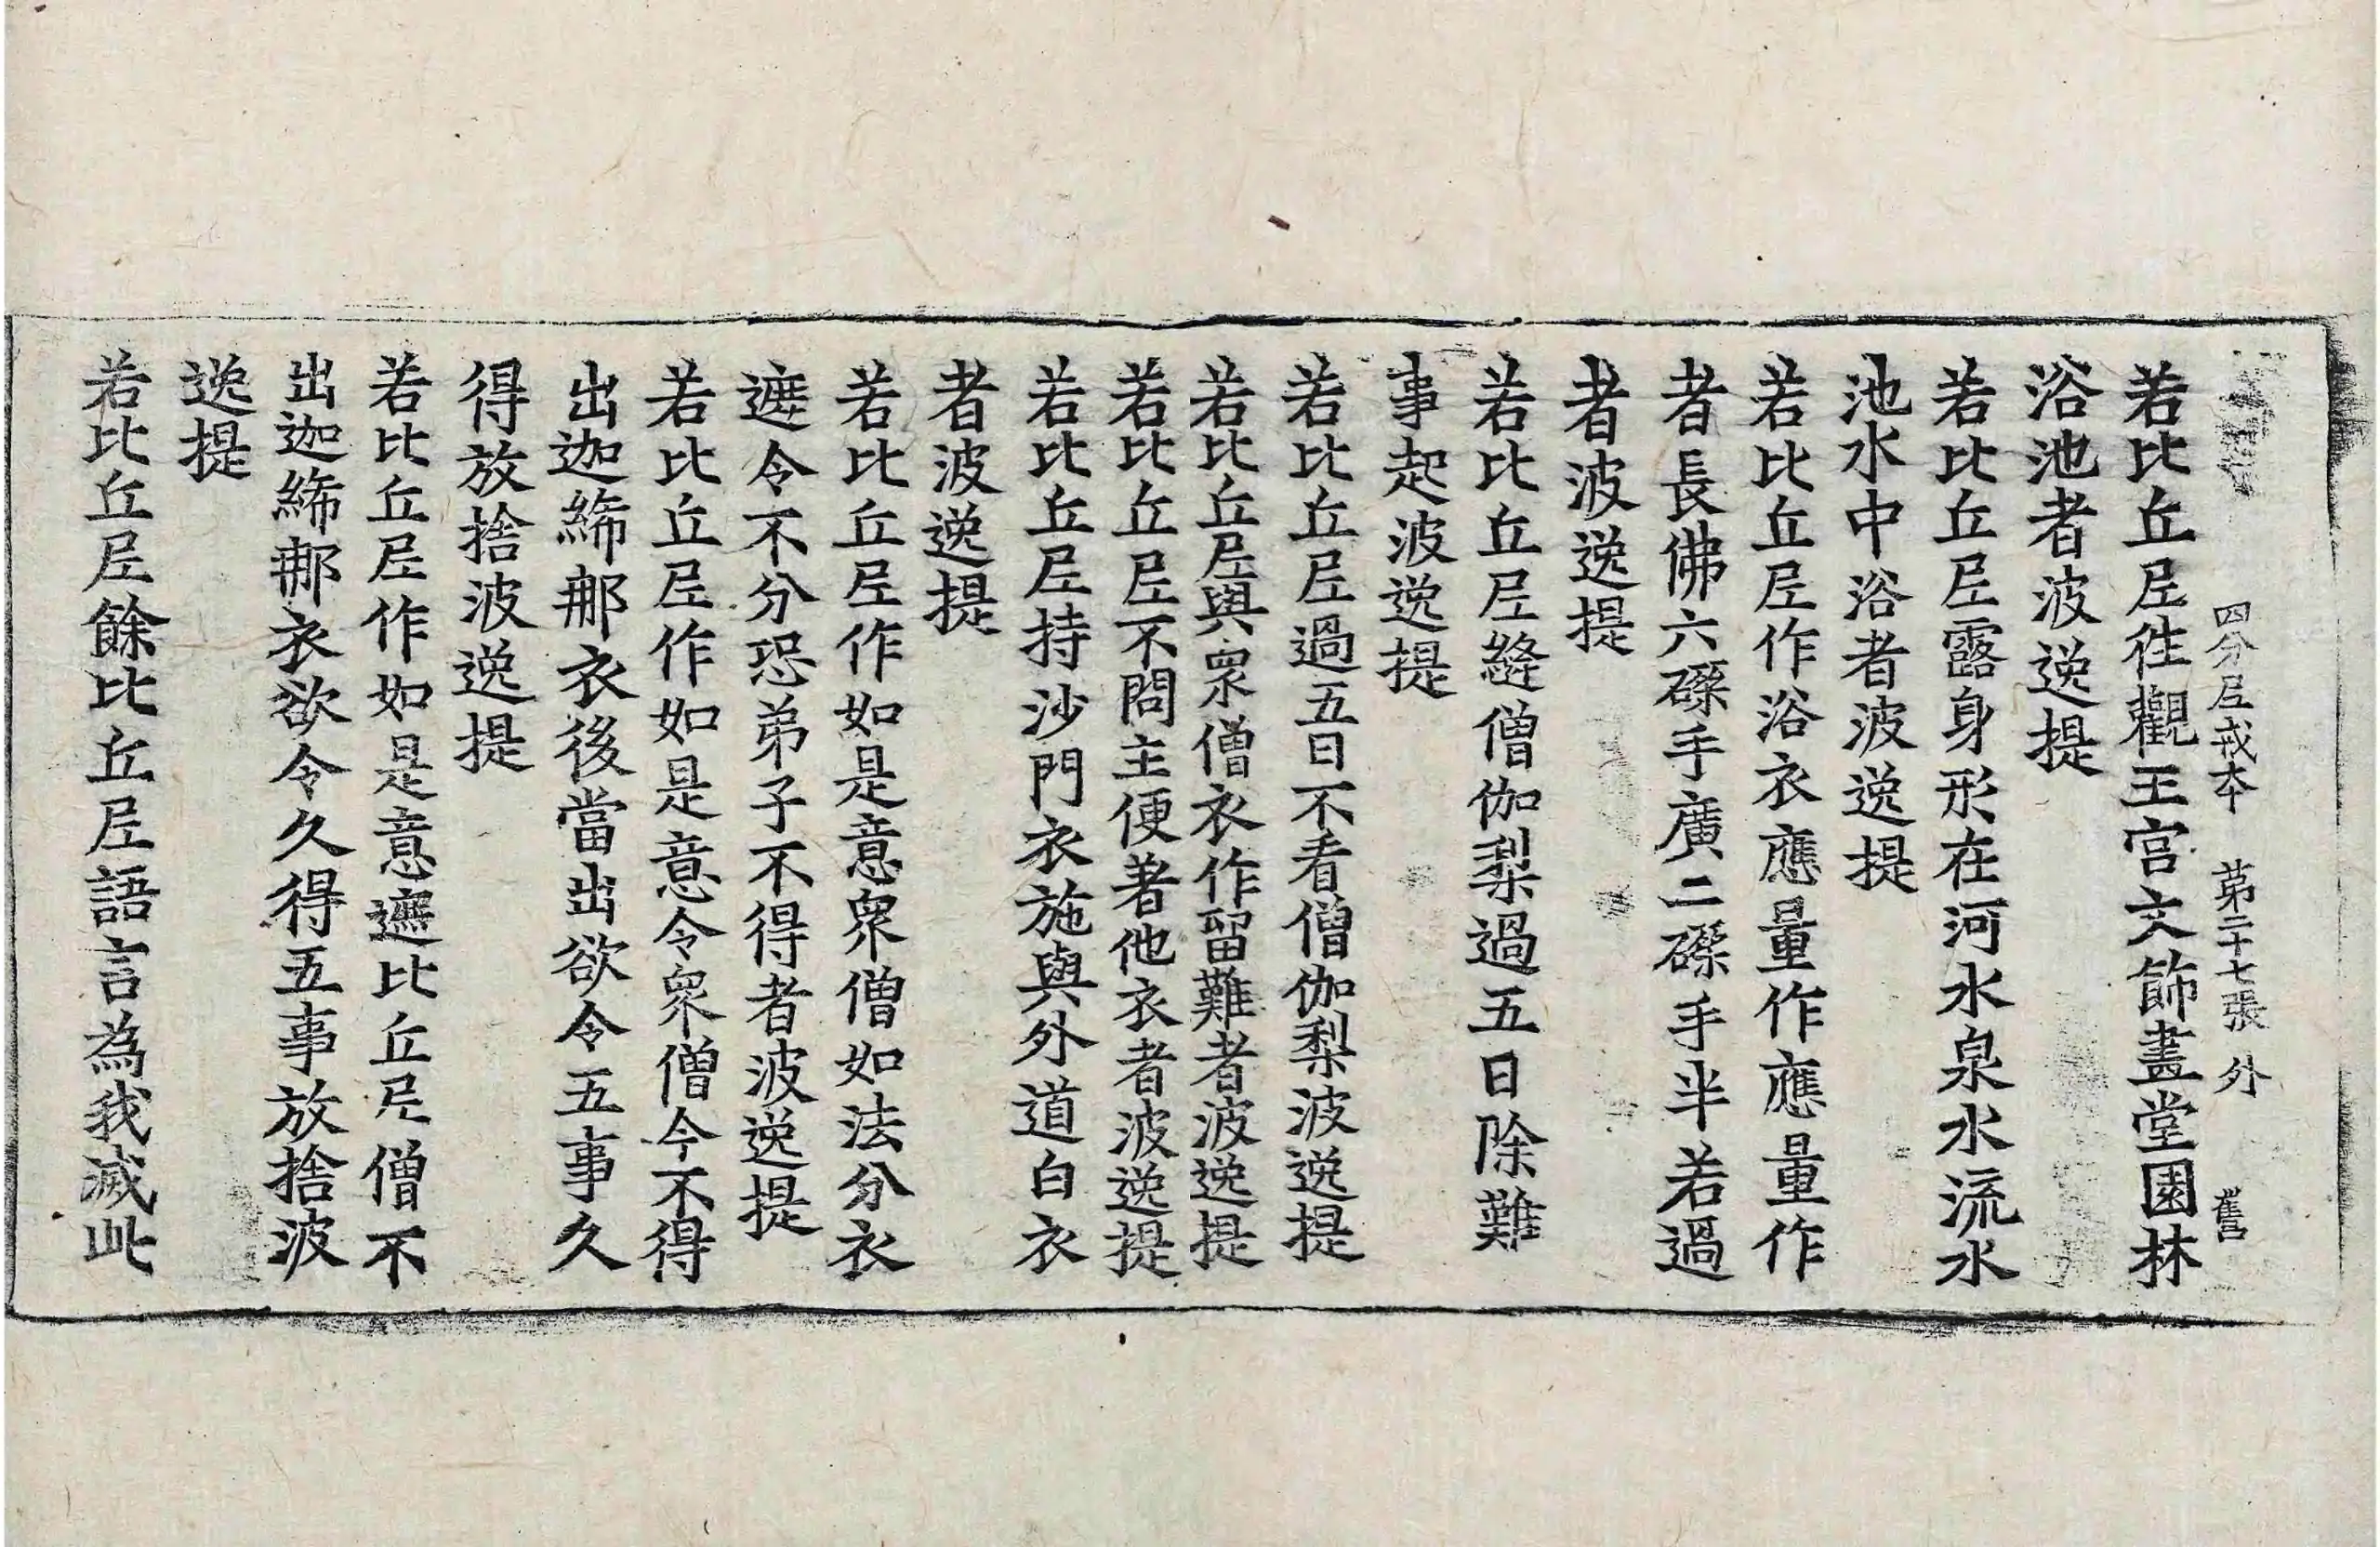 四分尼戒本 第二十七張 外 舊
若比丘尼往觀王宮文飾畫堂園林
浴池者波逸提
若比丘尼露身形在河水泉水流水
池水中浴者波逸提
若比丘尼作浴衣應量作應量作
者長佛六磔手廣二磔手半若過
者波逸提
若比丘尼縫僧伽梨過五日除難
事起波逸提
若比丘尼過五日不看僧伽梨波逸提
若比丘尼與眾僧衣作留難者波逸提
若比丘尼不問主便著他衣者波逸提
若比丘尼持沙門衣施與外道白衣
者波逸提
若比丘尼作如是意眾僧如法分衣
遮令不分恐弟子不得者波逸提
若比丘尼作如是意令眾僧今不得
出迦絺那衣後當出欲令五事久
得放捨波逸提
若比丘尼作如是意遮比丘尼僧不
出迦絺那衣欲令久得五事放捨波
逸提
若比丘尼餘比丘尼語言為我滅此